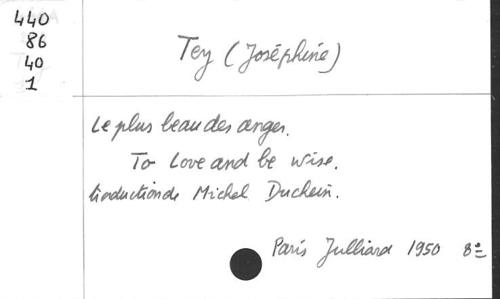 440
86
40
1
Tey (Joséphine)
Le plus beau des anges.
To Love and be wise.
traduction de Michel Duchein.
Paris Julliard 1950 8º